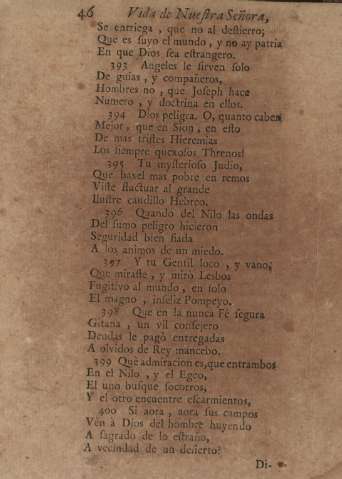 46 Vida de Nuestra Señora,
Se entriega, que no al destierro;
Que es suyo el mundo, y no ay patria
En que Dios sea estrangero.
393 Angeles le sirven solo
De guias, y compañeros,
Hombres no, que Joseph hace
Numero, y doctrina en ellos.
394 Dios peligra. O, quanto caben
Mejor, que en Sion, en esto
De mas tristes Hieremias
Los siempre quexosos Threnos!
395 Tu mysterioso Judio,
Que baxel mas pobre en remos
Viste fluctuar al grande
Ilustre caudillo Hebreo.
396 Quando del Nilo las ondas
Del sumo peligro hicieron
Seguridad bien fiada
A los animos de un miedo.
397 Y tu Gentil loco, y vano,
Que miraste, y mirò Lesbos
Fugitivo al mundo, en solo
El magno, infeliz Pompeyo.
398 Que en la nunca Fé segura
Gitana, un vil consejero
Deudas le pagò entregadas
A olvidos de Rey mancebo.
399 Què admiracion es, que entrambos
En el Nilo, y el Egeo,
El uno busque socorros,
Y el otro encuentre escarmientos,
400 Si aora, aora sus campos
Vén à Dios del hombre huyendo
A sagrado de lo estraño,
A vecindad de un desierto?
Di-